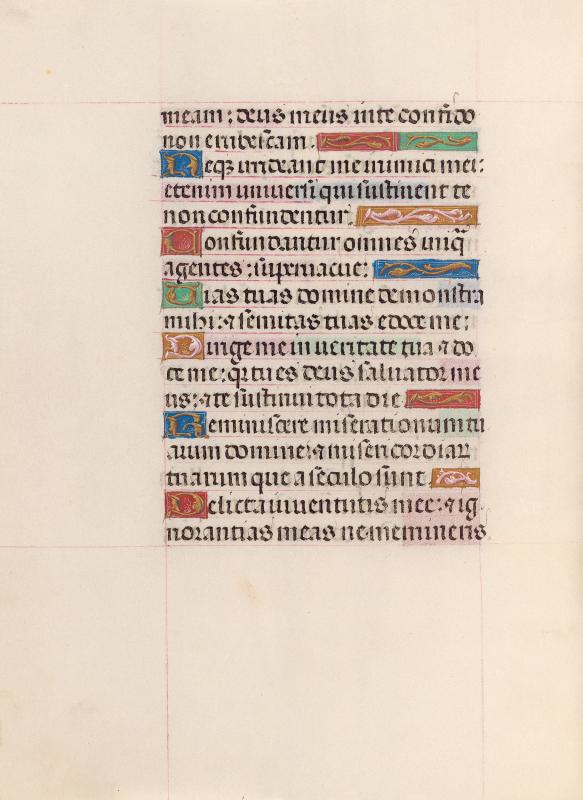 meam: deus meus in te confido
non erubescam.
Neqȝ irrideant me inimici mei:
etenim universi qui sustinent te
non confundentur.
Confundantur omnes iniq̄
agentes: supervacue:
Vias tuas domine demonstra
mihi: ⁊ semitas tuas edoce me:
Dirige me in veritate tua ⁊ do
ce me: qr tu es deus salvator me
us: ⁊ te sustinui tota die
Reminiscere miserationum tu
arum domine: ⁊ misericordiarr
tuarum que a seculo sunt
Delicta iuventutis mee: ⁊ ig
norantias meas ne memineris